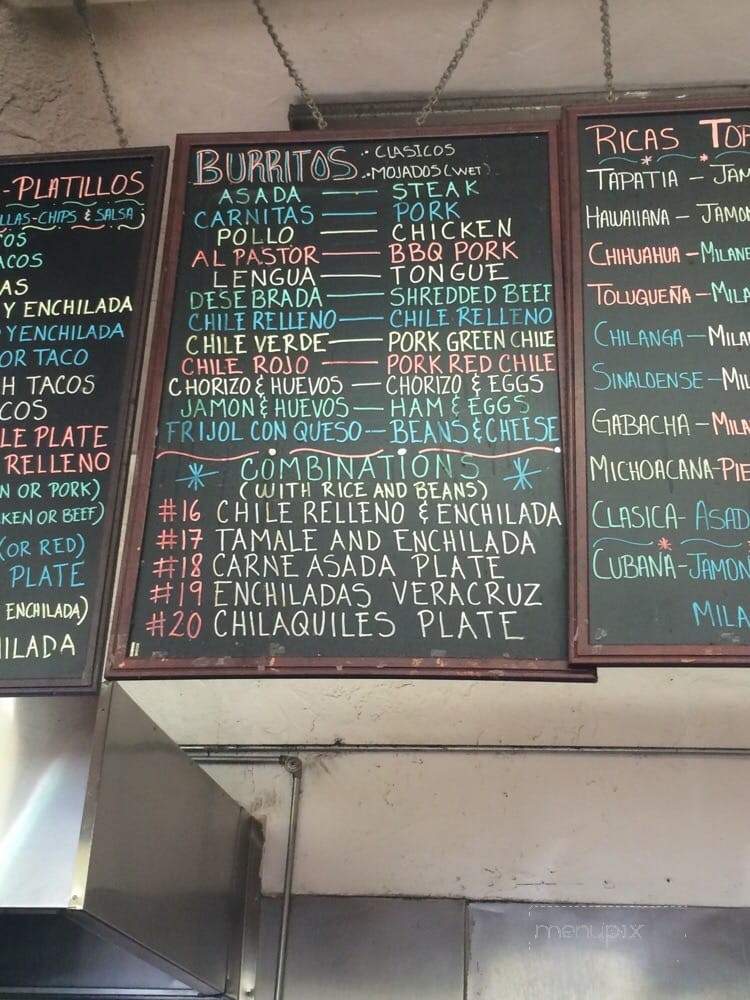 -PLATILLOS
LLAS-CHIPS & SALSA
COS
ACOS
AS
Y ENCHILADA
YENCHILADA
OR TACO
H TACOS
COS
LE PLATE
RELLENO
N OR PORK)
KEN OR BEEF)
(OR RED)
PLATE
ENCHILADA)
HILADA
BURRITOS • CLASICOS
• MOJADOS (WET)
ASADA — STEAK
CARNITAS — PORK
POLLO — CHICKEN
AL PASTOR — BBQ PORK
LENGUA — TONGUE
DESEBRADA — SHREDDED BEEF
CHILE RELLENO — CHILE RELLENO
CHILE VERDE — PORK GREEN CHILE
CHILE ROJO — PORK RED CHILE
CHORIZO & HUEVOS — CHORIZO & EGGS
JAMON & HUEVOS — HAM & EGGS
FRIJOL CON QUESO — BEANS & CHEESE
COMBINATIONS
(WITH RICE AND BEANS)
#16 CHILE RELLENO & ENCHILADA
#17 TAMALE AND ENCHILADA
#18 CARNE ASADA PLATE
#19 ENCHILADAS VERACRUZ
#20 CHILAQUILES PLATE
RICAS TOR
TAPATIA — JAM
HAWAIIANA — JAMO
CHIHUAHUA — MILANE
TOLUQUEÑA — MILA
CHILANGA — MILA
SINALOENSE — MIL
GABACHA — MILA
MICHOACANA-PIE
CLASICA- ASAD
CUBANA-JAMON
MILA
menupix